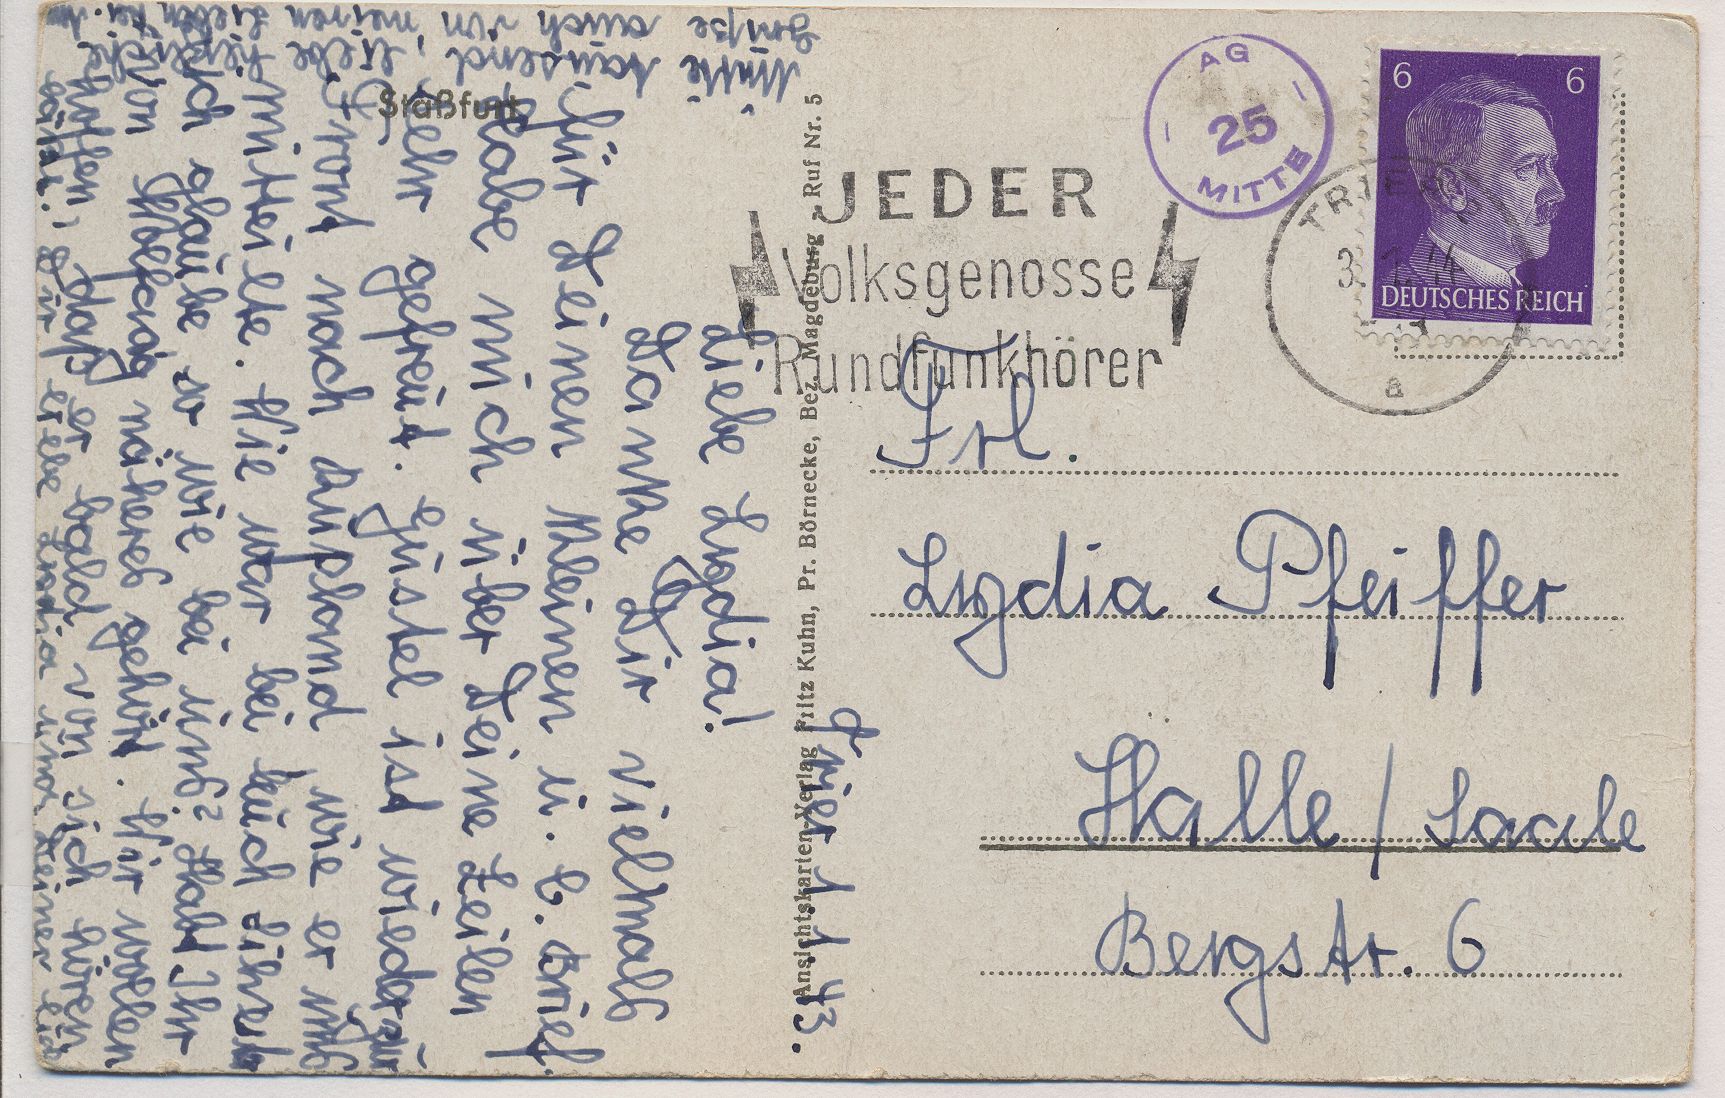 Staßfurt
Trier 1.1.43.
Liebe Lydia!
Danke Dir vielmals
für Deinen kleinen u. l. Brief.
Habe mich über Deine Zeilen
sehr gefreut. Güstel ist wieder zur
Front nach wie er uns
mitteilte. Wie war bei Euch
Ich glaube so wie bei uns? Habt Ihr
von näheres gehört. Wir wollen
hoffen, daß er bald von sich hören
läßt. Dir liebe Lydia und Deiner lieben
Mutti tausend, liebe herzliche
Grüße auch von meinen Lieben
Ansichtskarten-Verlag Fritz Kuhn, Pr. Börnecke, Bez. Magdeburg - Ruf Nr. 5
AG
25
MITTE
6 6
DEUTSCHES REICH
TRIER
3.
a
JEDER
Volksgenosse
Rundfunkhörer
Frl.
Lydia Pfeiffer
Halle / Saale
Bergstr. 6